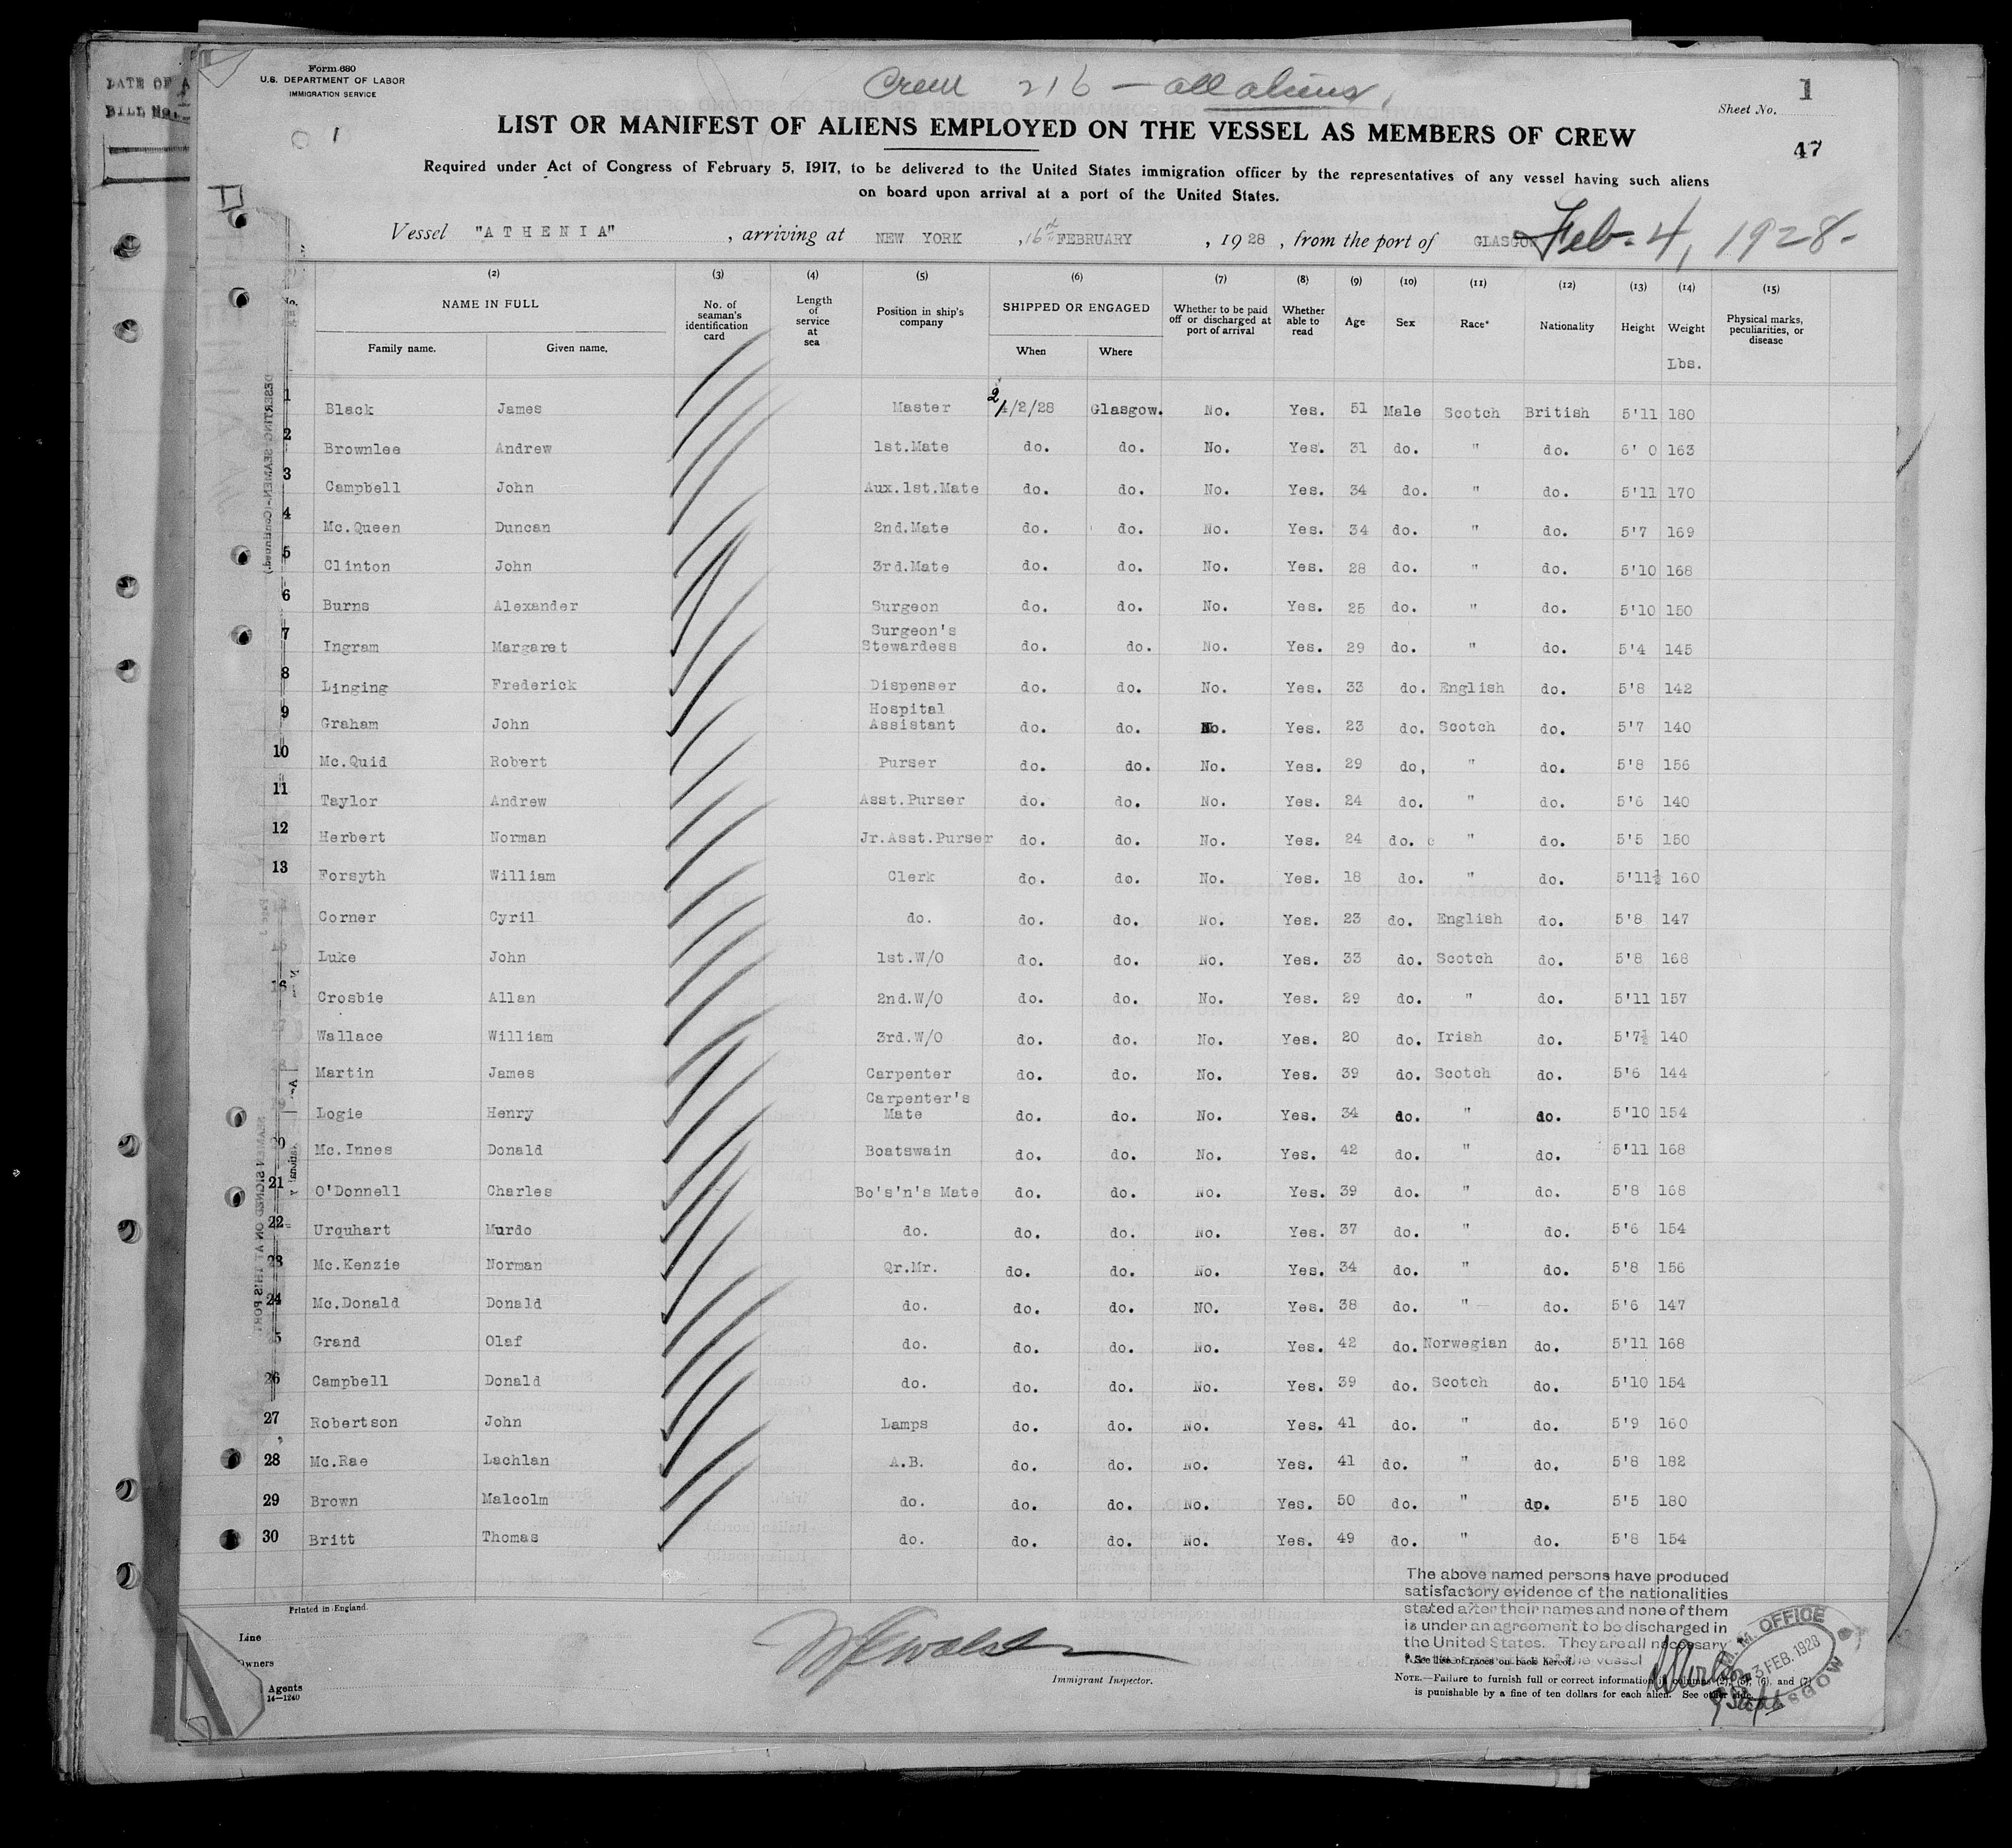 DATE OF A
BILL No.
Form 680
U.S. DEPARTMENT OF LABOR
IMMIGRATION SERVICE
Crew 216 — all aliens,
1
Sheet No.
1
LIST OR MANIFEST OF ALIENS EMPLOYED ON THE VESSEL AS MEMBERS OF CREW
47
Required under Act of Congress of February 5, 1917, to be delivered to the United States immigration officer by the representatives of any vessel having such aliens
on board upon arrival at a port of the United States.
Vessel "ATHENIA" , arriving at NEW YORK , 16th FEBRUARY , 1928 , from the port of GLASGOW Feb. 4, 1928.
(2) (3) (4) (5) (6) (7) (8) (9) (10) (11) (12) (13) (14) (15)
No. NAME IN FULL No. of seaman's identification card Length of service at sea Position in ship's company SHIPPED OR ENGAGED Whether to be paid off or discharged at port of arrival Whether able to read Age Sex Race* Nationality Height Weight Physical marks, peculiarities, or disease
Family name. Given name. When Where Lbs.
1 Black James Master 2/2/28 Glasgow. No. Yes. 51 Male Scotch British 5'11 180
2 Brownlee Andrew 1st.Mate do. do. No. Yes. 31 do. " do. 6' 0 163
3 Campbell John Aux.1st.Mate do. do. No. Yes. 34 do. " do. 5'11 170
4 Mc.Queen Duncan 2nd.Mate do. do. No. Yes. 34 do. " do. 5'7 169
5 Clinton John 3rd.Mate do. do. No. Yes. 28 do. " do. 5'10 168
6 Burns Alexander Surgeon do. do. No. Yes. 25 do. " do. 5'10 150
7 Ingram Margaret Surgeon's Stewardess do. do. No. Yes. 29 do. " do. 5'4 145
8 Linging Frederick Dispenser do. do. No. Yes. 33 do. English do. 5'8 142
9 Graham John Hospital Assistant do. do. No. Yes. 23 do. Scotch do. 5'7 140
10 Mc.Quid Robert Purser do. do. No. Yes. 29 do, " do. 5'8 156
11 Taylor Andrew Asst.Purser do. do. No. Yes. 24 do. " do. 5'6 140
12 Herbert Norman Jr.Asst.Purser do. do. No. Yes. 24 do. " do. 5'5 150
13 Forsyth William Clerk do. do. No. Yes. 18 do. " do. 5'11½ 160
Corner Cyril do. do. do. No. Yes. 23 do. English do. 5'8 147
Luke John 1st.W/O do. do. No. Yes. 33 do. Scotch do. 5'8 168
16 Crosbie Allan 2nd.W/O do. do. No. Yes. 29 do. " do. 5'11 157
Wallace William 3rd.W/O do. do. No. Yes. 20 do. Irish do. 5'7½ 140
Martin James Carpenter do. do. No. Yes. 39 do. Scotch do. 5'6 144
Logie Henry Carpenter's Mate do. do. No. Yes. 34 do. " do. 5'10 154
20 Mc.Innes Donald Boatswain do. do. No. Yes. 42 do. " do. 5'11 168
21 O'Donnell Charles Bo's'n's Mate do. do. No. Yes. 39 do. " do. 5'8 168
22 Urquhart Murdo do. do. do. No. Yes. 37 do. " do. 5'6 154
23 Mc.Kenzie Norman Qr.Mr. do. do. No. Yes. 34 do. " do. 5'8 156
24 Mc.Donald Donald do. do. do. NO. Yes. 38 do. " do. 5'6 147
5 Grand Olaf do. do. do. No. Yes. 42 do. Norwegian do. 5'11 168
26 Campbell Donald do. do. do. No. Yes. 39 do. Scotch do. 5'10 154
27 Robertson John Lamps do. do. No. Yes. 41 do. " do. 5'9 160
28 Mc.Rae Lachlan A.B. do. do. No. Yes. 41 do. " do. 5'8 182
29 Brown Malcolm do. do. do. No. Yes. 50 do. " do. 5'5 180
30 Britt Thomas do. do. do. No. Yes. 49 do. " do. 5'8 154
The above named persons have produced
satisfactory evidence of the nationalities
stated after their names and none of them
is under an agreement to be discharged in
the United States. They are all necessary
vessel
Printed in England.
Line
Owners
Agents
14—1240
Immigrant Inspector.
* See list of races on back hereof.
NOTE.—Failure to furnish full or correct information in columns (2), (5), (6), and (7)
is punishable by a fine of ten dollars for each alien. See other side.
M. M. OFFICE
3 FEB. 1928
GLASGOW